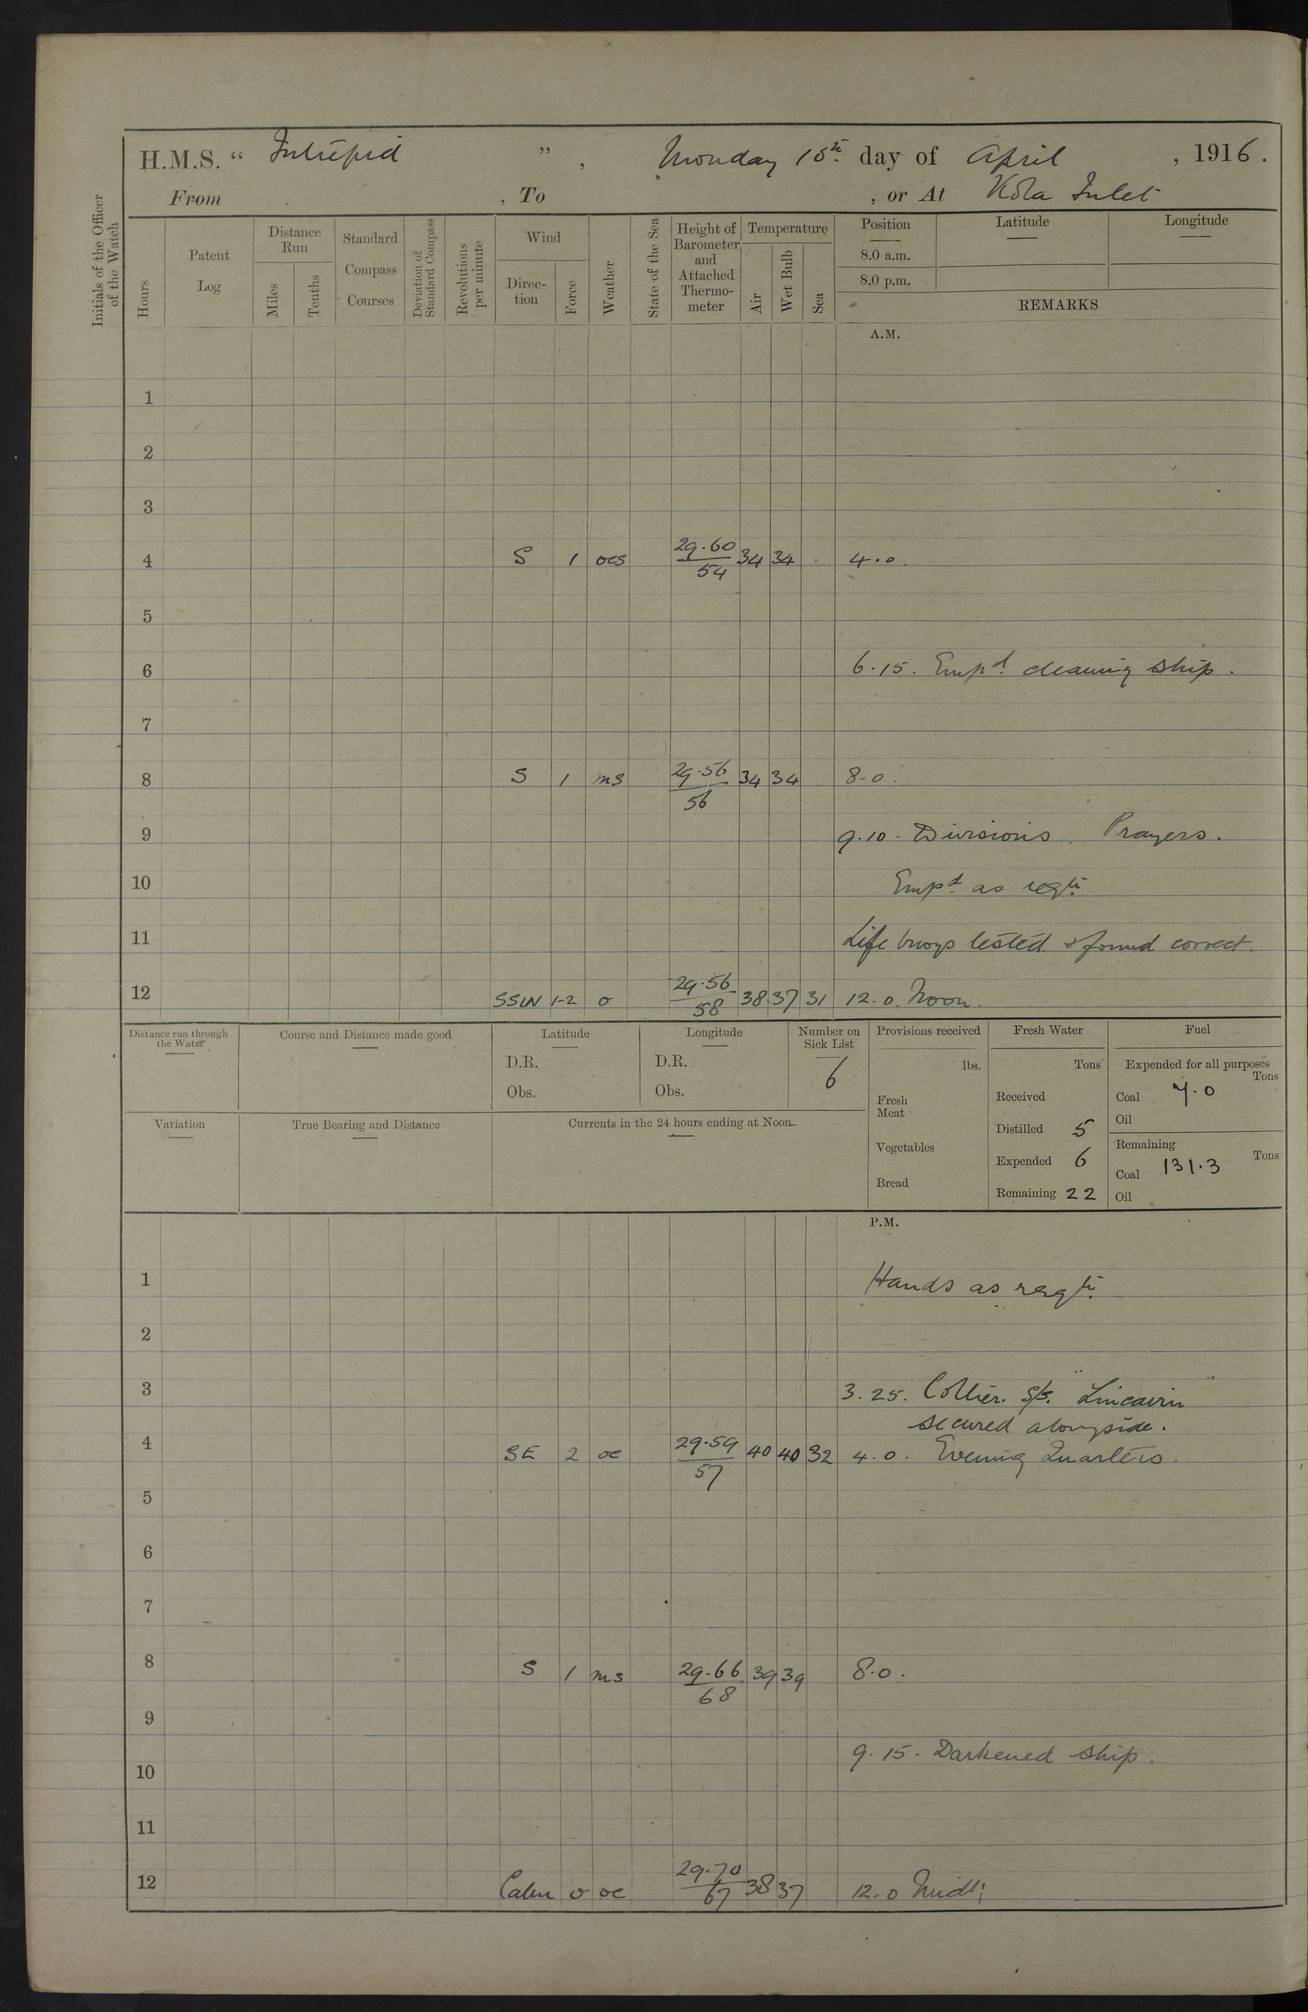 H.M.S. “ Intrepid ” , Monday 10th day of April , 1916.
From , To , or At Kola Inlet
Initials of the Officer of the Watch
Hours
Patent Log
Distance Run
Miles
Tenths
Standard Compass Courses
Deviation of Standard Compass
Revolutions per minute
Wind
Direc-tion
Force
Weather
State of the Sea
Height of Barometer and Attached Thermo-meter
Temperature
Air
Wet Bulb
Sea
Position Latitude Longitude
8.0 a.m.
8.0 p.m.
REMARKS
A.M.
1
2
3
4 S 1 ocs 29.60/54 34 34 4.0.
5
6 6.15. Empd. cleaning ship.
7
8 S 1 ms 29.56/56 34 34 8.0.
9 9.10. Divisions. Prayers.
10 Empd. as reqte.
11 Life buoys tested & found correct.
12 SSW 1-2 o 29.56/58 38 37 31 12.0. Noon.
Distance run through the Water
Course and Distance made good
Latitude
D.R.
Obs.
Longitude
D.R.
Obs.
Number on Sick List
6
Provisions received
lbs.
Fresh Meat
Vegetables
Bread
Fresh Water
Tons
Received
Distilled 5
Expended 6
Remaining 22
Fuel
Expended for all purposes
Tons
Coal 7.0
Oil
Remaining
Tons
Coal 131.3
Oil
Variation
True Bearing and Distance
Currents in the 24 hours ending at Noon.
P.M.
1 Hands as reqte.
2
3 3.25. Collier. S/s. "Lincairn"
secured alongside.
4 SE 2 oc 29.59/57 40 40 32 4.0. Evening Quarters.
5
6
7
8 S 1 ms 29.66/68 39 39 8.0.
9
10 9.15. Darkened ship.
11
12 Calm 0 oc 29.70/67 38 37 12.0 Midt.